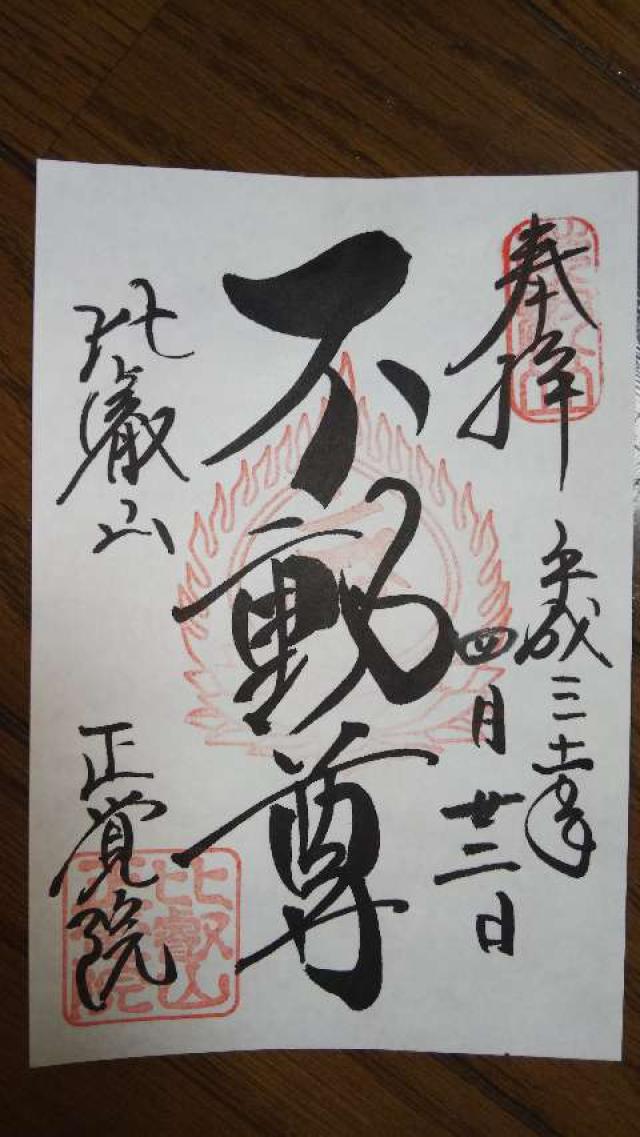 奉拝
平成三十一年
四月廿二日
不動尊
比叡山
正覚院
比叡山
正覚院